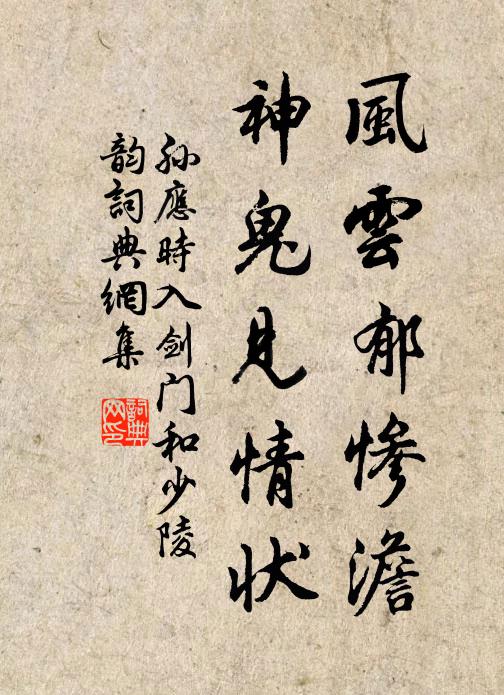 風雲郁慘澹
神鬼見情状
孫應時入劍门和少陵
韵詞典網集
詞典网印